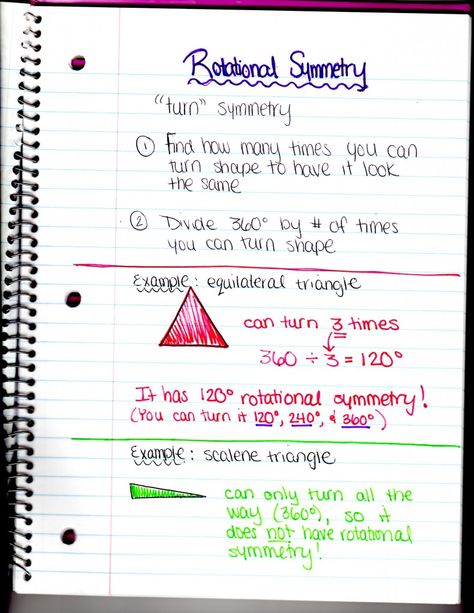 Rotational Symmetry
"turn" symmetry
① Find how many times you can
turn shape to have it look
the same
② Divide 360° by # of times
you can turn shape
Example: equilateral triangle
can turn 3 times
360 ÷ 3 = 120°
It has 120° rotational symmetry!
(You can turn it 120°, 240°, & 360°)
Example: scalene triangle
can only turn all the
way (360°), so it
does not have rotational
symmetry!